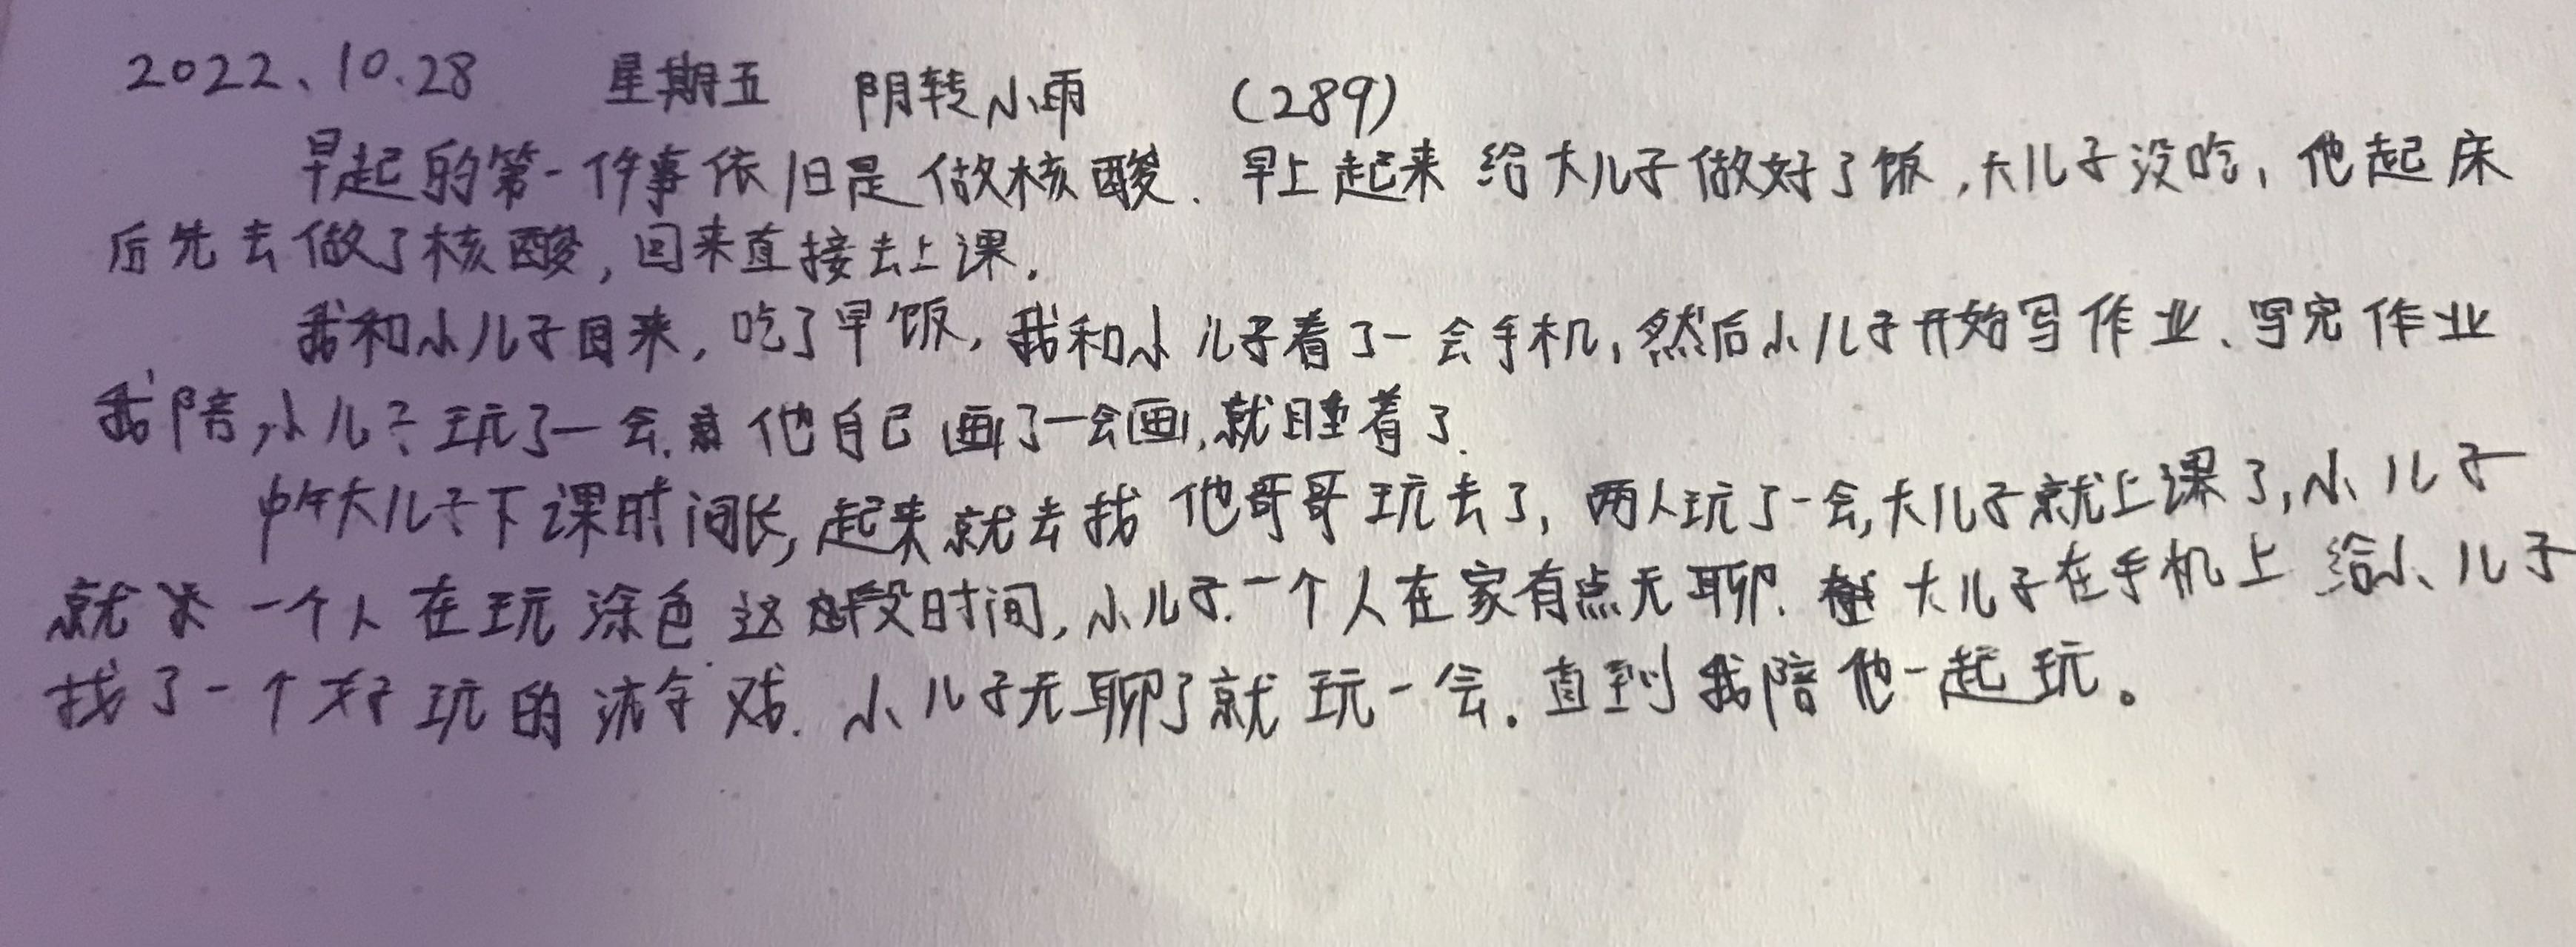 2022、10.28 星期五 阴转小雨 (289)
早起的第一件事依旧是做核酸．早上起来给大儿子做好了饭，大儿子没吃，他起床
后先去做了核酸，回来直接去上课．
我和小儿子回来，吃了早饭，我和小儿子看了一会手机，然后小儿子开始写作业、写完作业
我陪小儿子玩了一会．他自己画了一会画，就睡着了．
中午大儿子下课时间长，起来就去找他哥哥玩去了，两人玩了一会，大儿子就上课了，小儿子
就一个人在玩涂色这段时间，小儿子一个人在家有点无聊．大儿子在手机上给小儿子
找了一个好玩的游戏．小儿子无聊了就玩一会．直到我陪他一起玩。